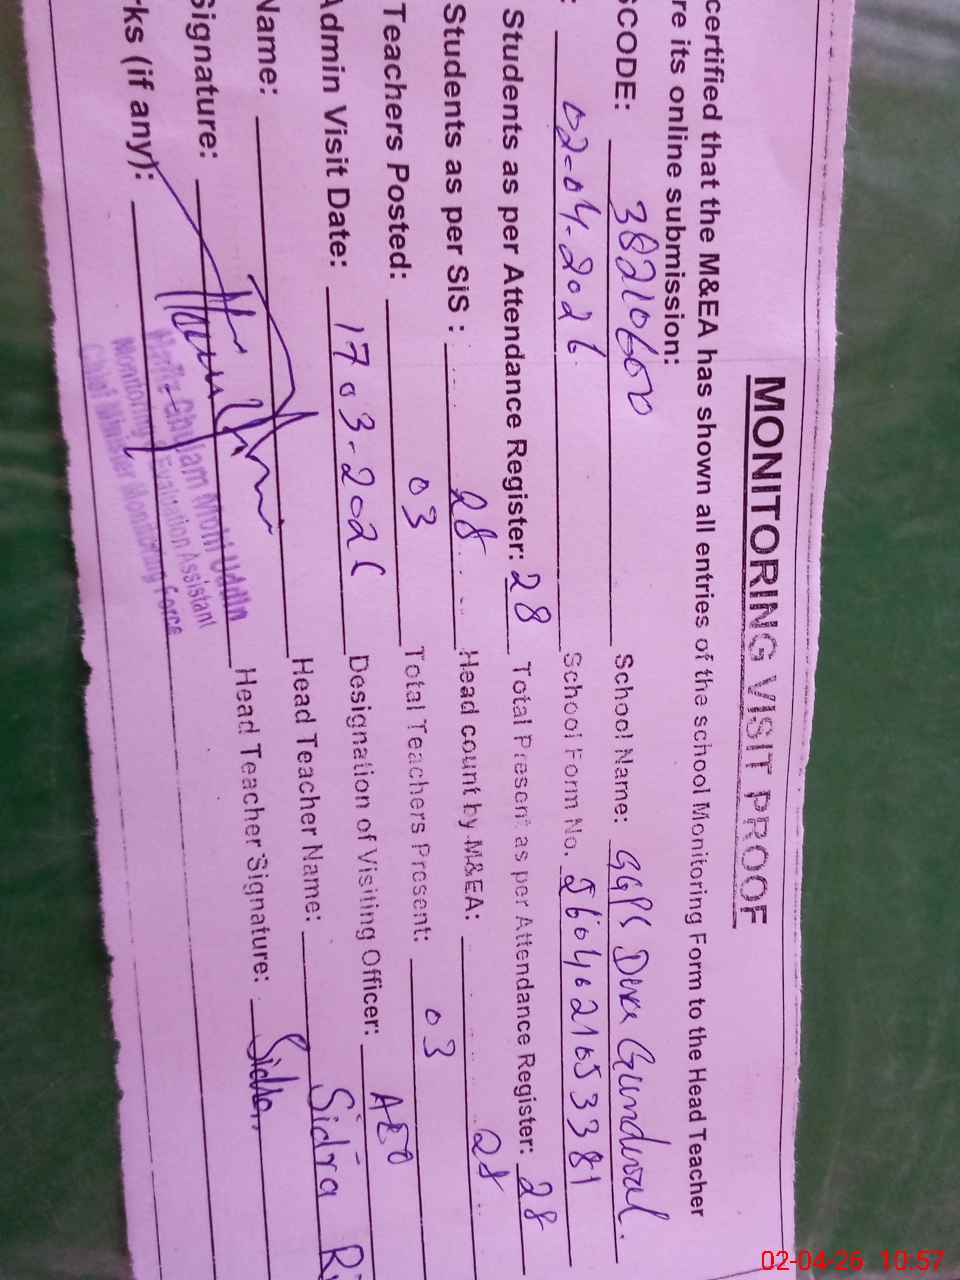 MONITORING VISIT PROOF
certified that the M&EA has shown all entries of the school Monitoring Form to the Head Teacher
re its online submission:
SCODE: 38210600 School Name: GGPS Dera Gandwal.
: 02-04-2026 School Form No. 2604021053381
Students as per Attendance Register: 28 Total Present as per Attendance Register: 28
Students as per SiS : 28 Head count by M&EA: 28
Teachers Posted: 03 Total Teachers Present: 03
Admin Visit Date: 17 03-202 Designation of Visiting Officer: AEO
Name: Head Teacher Name: Sidra
Signature: Head Teacher Signature: Sidra
rks (if any):
Hafiz Ghulam Mohi Uddin
Monitoring Evaluation Assistant
Chief Minister Monitoring Force
02-04-26 10:57